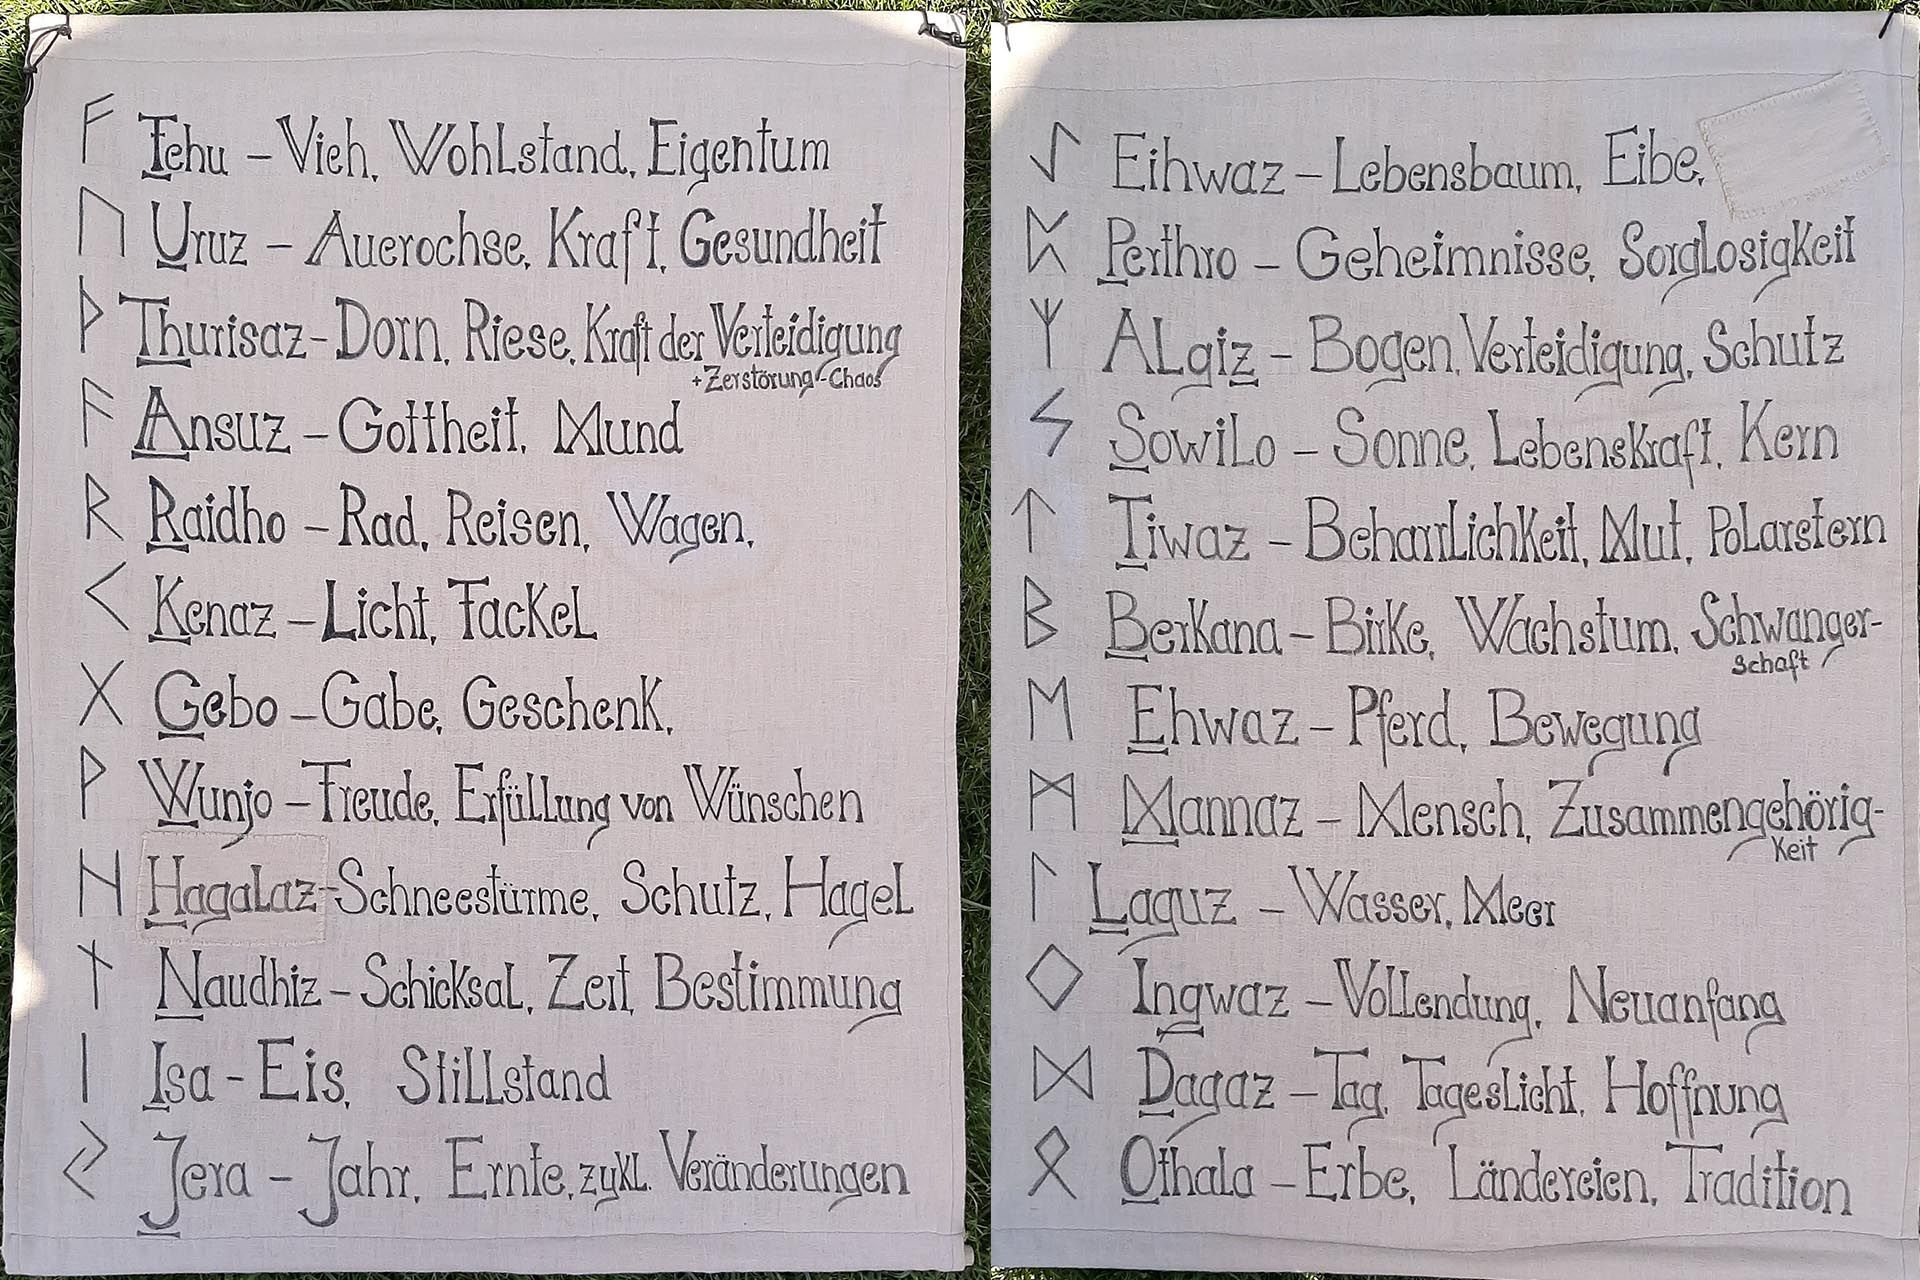 ᚠ Fehu – Vieh, Wohlstand, Eigentum
ᚢ Uruz – Auerochse, Kraft, Gesundheit
ᚦ Thurisaz – Dorn, Riese, Kraft der Verteidigung
+ Zerstörung - Chaos
ᚨ Ansuz – Gottheit, Mund
ᚱ Raidho – Rad, Reisen, Wagen,
ᚲ Kenaz – Licht, Fackel
ᚷ Gebo – Gabe, Geschenk,
ᚹ Wunjo – Freude, Erfüllung von Wünschen
ᚺ Hagalaz - Schneestürme, Schutz, Hagel
ᚾ Naudhiz – Schicksal, Zeit, Bestimmung
ᛁ Isa - Eis, Stillstand
ᛃ Jera – Jahr, Ernte, zykl. Veränderungen
ᛇ Eihwaz – Lebensbaum, Eibe,
ᛈ Perthro – Geheimnisse, Sorglosigkeit
ᛉ Algiz – Bogen, Verteidigung, Schutz
ᛊ Sowilo – Sonne, Lebenskraft, Kern
ᛏ Tiwaz – Beharrlichkeit, Mut, Polarstern
ᛒ Berkana – Birke, Wachstum, Schwanger-
schaft
ᛖ Ehwaz – Pferd, Bewegung
ᛗ Mannaz – Mensch, Zusammengehörig-
keit
ᛚ Laguz – Wasser, Meer
ᛜ Ingwaz – Vollendung, Neuanfang
ᛞ Dagaz – Tag, Tageslicht, Hoffnung
ᛟ Othala – Erbe, Ländereien, Tradition